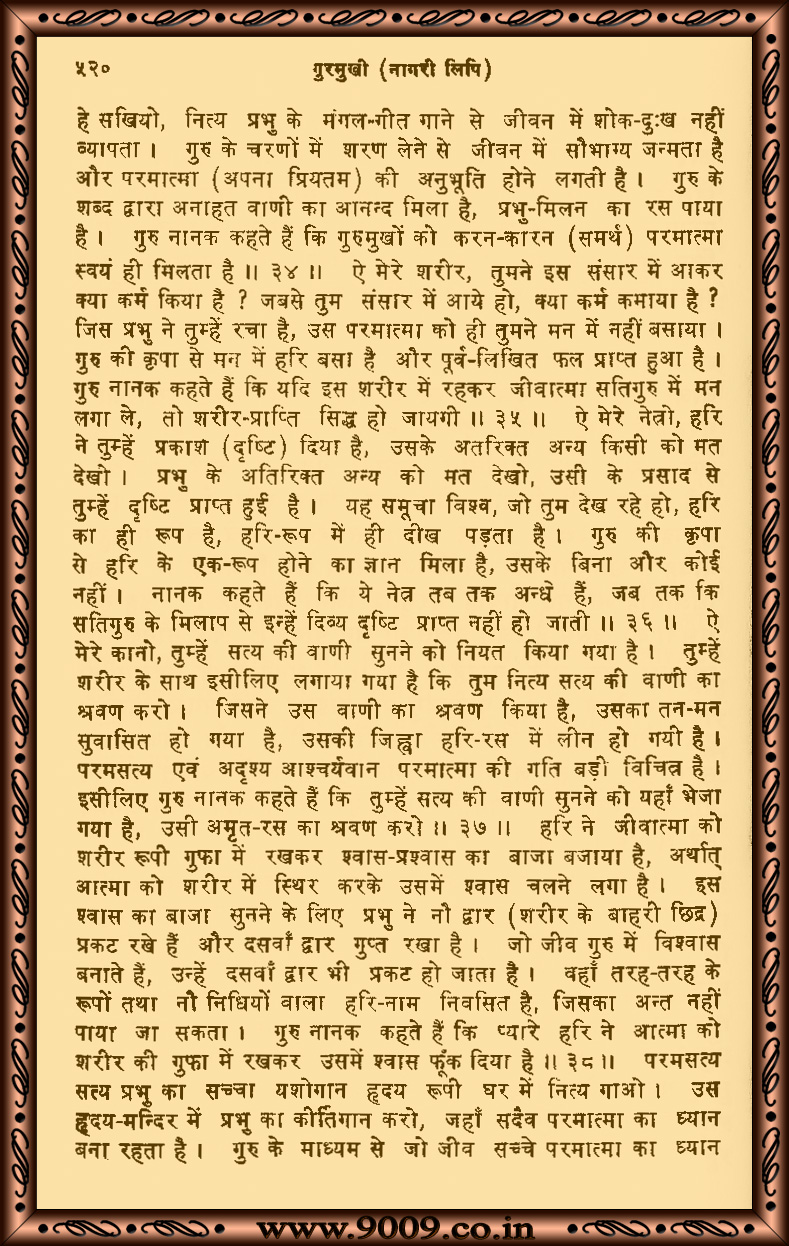 ५२०
गुरमुखी (नागरी लिपि)
हे सखियो, नित्य प्रभु के मंगल-गीत गाने से जीवन में शोक-दुःख नहीं
व्यापता । गुरु के चरणों में शरण लेने से जीवन में सौभाग्य जन्मता है
और परमात्मा (अपना प्रियतम) की अनुभूति होने लगती है । गुरु के
शब्द द्वारा अनाहत वाणी का आनन्द मिला है, प्रभु-मिलन का रस पाया
है । गुरु नानक कहते हैं कि गुरुमुखों को करन-कारन (समर्थ) परमात्मा
स्वयं ही मिलता है ॥ ३४ ॥ ऐ मेरे शरीर, तुमने इस संसार में आकर
क्या कर्म किया है ? जबसे तुम संसार में आये हो, क्या कर्म कमाया है ?
जिस प्रभु ने तुम्हें रचा है, उस परमात्मा को ही तुमने मन में नहीं बसाया ।
गुरु की कृपा से मन में हरि बसा है और पूर्व-लिखित फल प्राप्त हुआ है ।
गुरु नानक कहते हैं कि यदि इस शरीर में रहकर जीवात्मा सतिगुरु में मन
लगा ले, तो शरीर-प्राप्ति सिद्ध हो जायगी ॥ ३५ ॥ ऐ मेरे नेत्रो, हरि
ने तुम्हें प्रकाश (दृष्टि) दिया है, उसके अतरिक्त अन्य किसी को मत
देखो । प्रभु के अतिरिक्त अन्य को मत देखो, उसी के प्रसाद से
तुम्हें दृष्टि प्राप्त हुई है । यह समूचा विश्व, जो तुम देख रहे हो, हरि
का ही रूप है, हरि-रूप में ही दीख पड़ता है । गुरु की कृपा
से हरि के एक-रूप होने का ज्ञान मिला है, उसके बिना और कोई
नहीं । नानक कहते हैं कि ये नेत्र तब तक अन्धे हैं, जब तक कि
सतिगुरु के मिलाप से इन्हें दिव्य दृष्टि प्राप्त नहीं हो जाती ॥ ३६ ॥ ऐ
मेरे कानो, तुम्हें सत्य की वाणी सुनने को नियत किया गया है । तुम्हें
शरीर के साथ इसीलिए लगाया गया है कि तुम नित्य सत्य की वाणी का
श्रवण करो । जिसने उस वाणी का श्रवण किया है, उसका तन-मन
सुवासित हो गया है, उसकी जिह्वा हरि-रस में लीन हो गयी है ।
परमसत्य एवं अदृश्य आश्चर्यवान परमात्मा की गति बड़ी विचित्र है ।
इसीलिए गुरु नानक कहते हैं कि तुम्हें सत्य की वाणी सुनने को यहाँ भेजा
गया है, उसी अमृत-रस का श्रवण करो ॥ ३७ ॥ हरि ने जीवात्मा को
शरीर रूपी गुफा में रखकर श्वास-प्रश्वास का बाजा बजाया है, अर्थात्
आत्मा को शरीर में स्थिर करके उसमें श्वास चलने लगा है । इस
श्वास का बाजा सुनने के लिए प्रभु ने नौ द्वार (शरीर के बाहरी छिद्र)
प्रकट रखे हैं और दसवाँ द्वार गुप्त रखा है । जो जीव गुरु में विश्वास
बनाते हैं, उन्हें दसवाँ द्वार भी प्रकट हो जाता है । वहाँ तरह-तरह के
रूपों तथा नौ निधियों वाला हरि-नाम निवसित है, जिसका अन्त नहीं
पाया जा सकता । गुरु नानक कहते हैं कि प्यारे हरि ने आत्मा को
शरीर की गुफा में रखकर उसमें श्वास फूंक दिया है ॥ ३८ ॥ परमसत्य
सत्य प्रभु का सच्चा यशोगान हृदय रूपी घर में नित्य गाओ । उस
हृदय-मन्दिर में प्रभु का कीर्तिगान करो, जहाँ सदैव परमात्मा का ध्यान
बना रहता है । गुरु के माध्यम से जो जीव सच्चे परमात्मा का ध्यान
www.9009.co.in